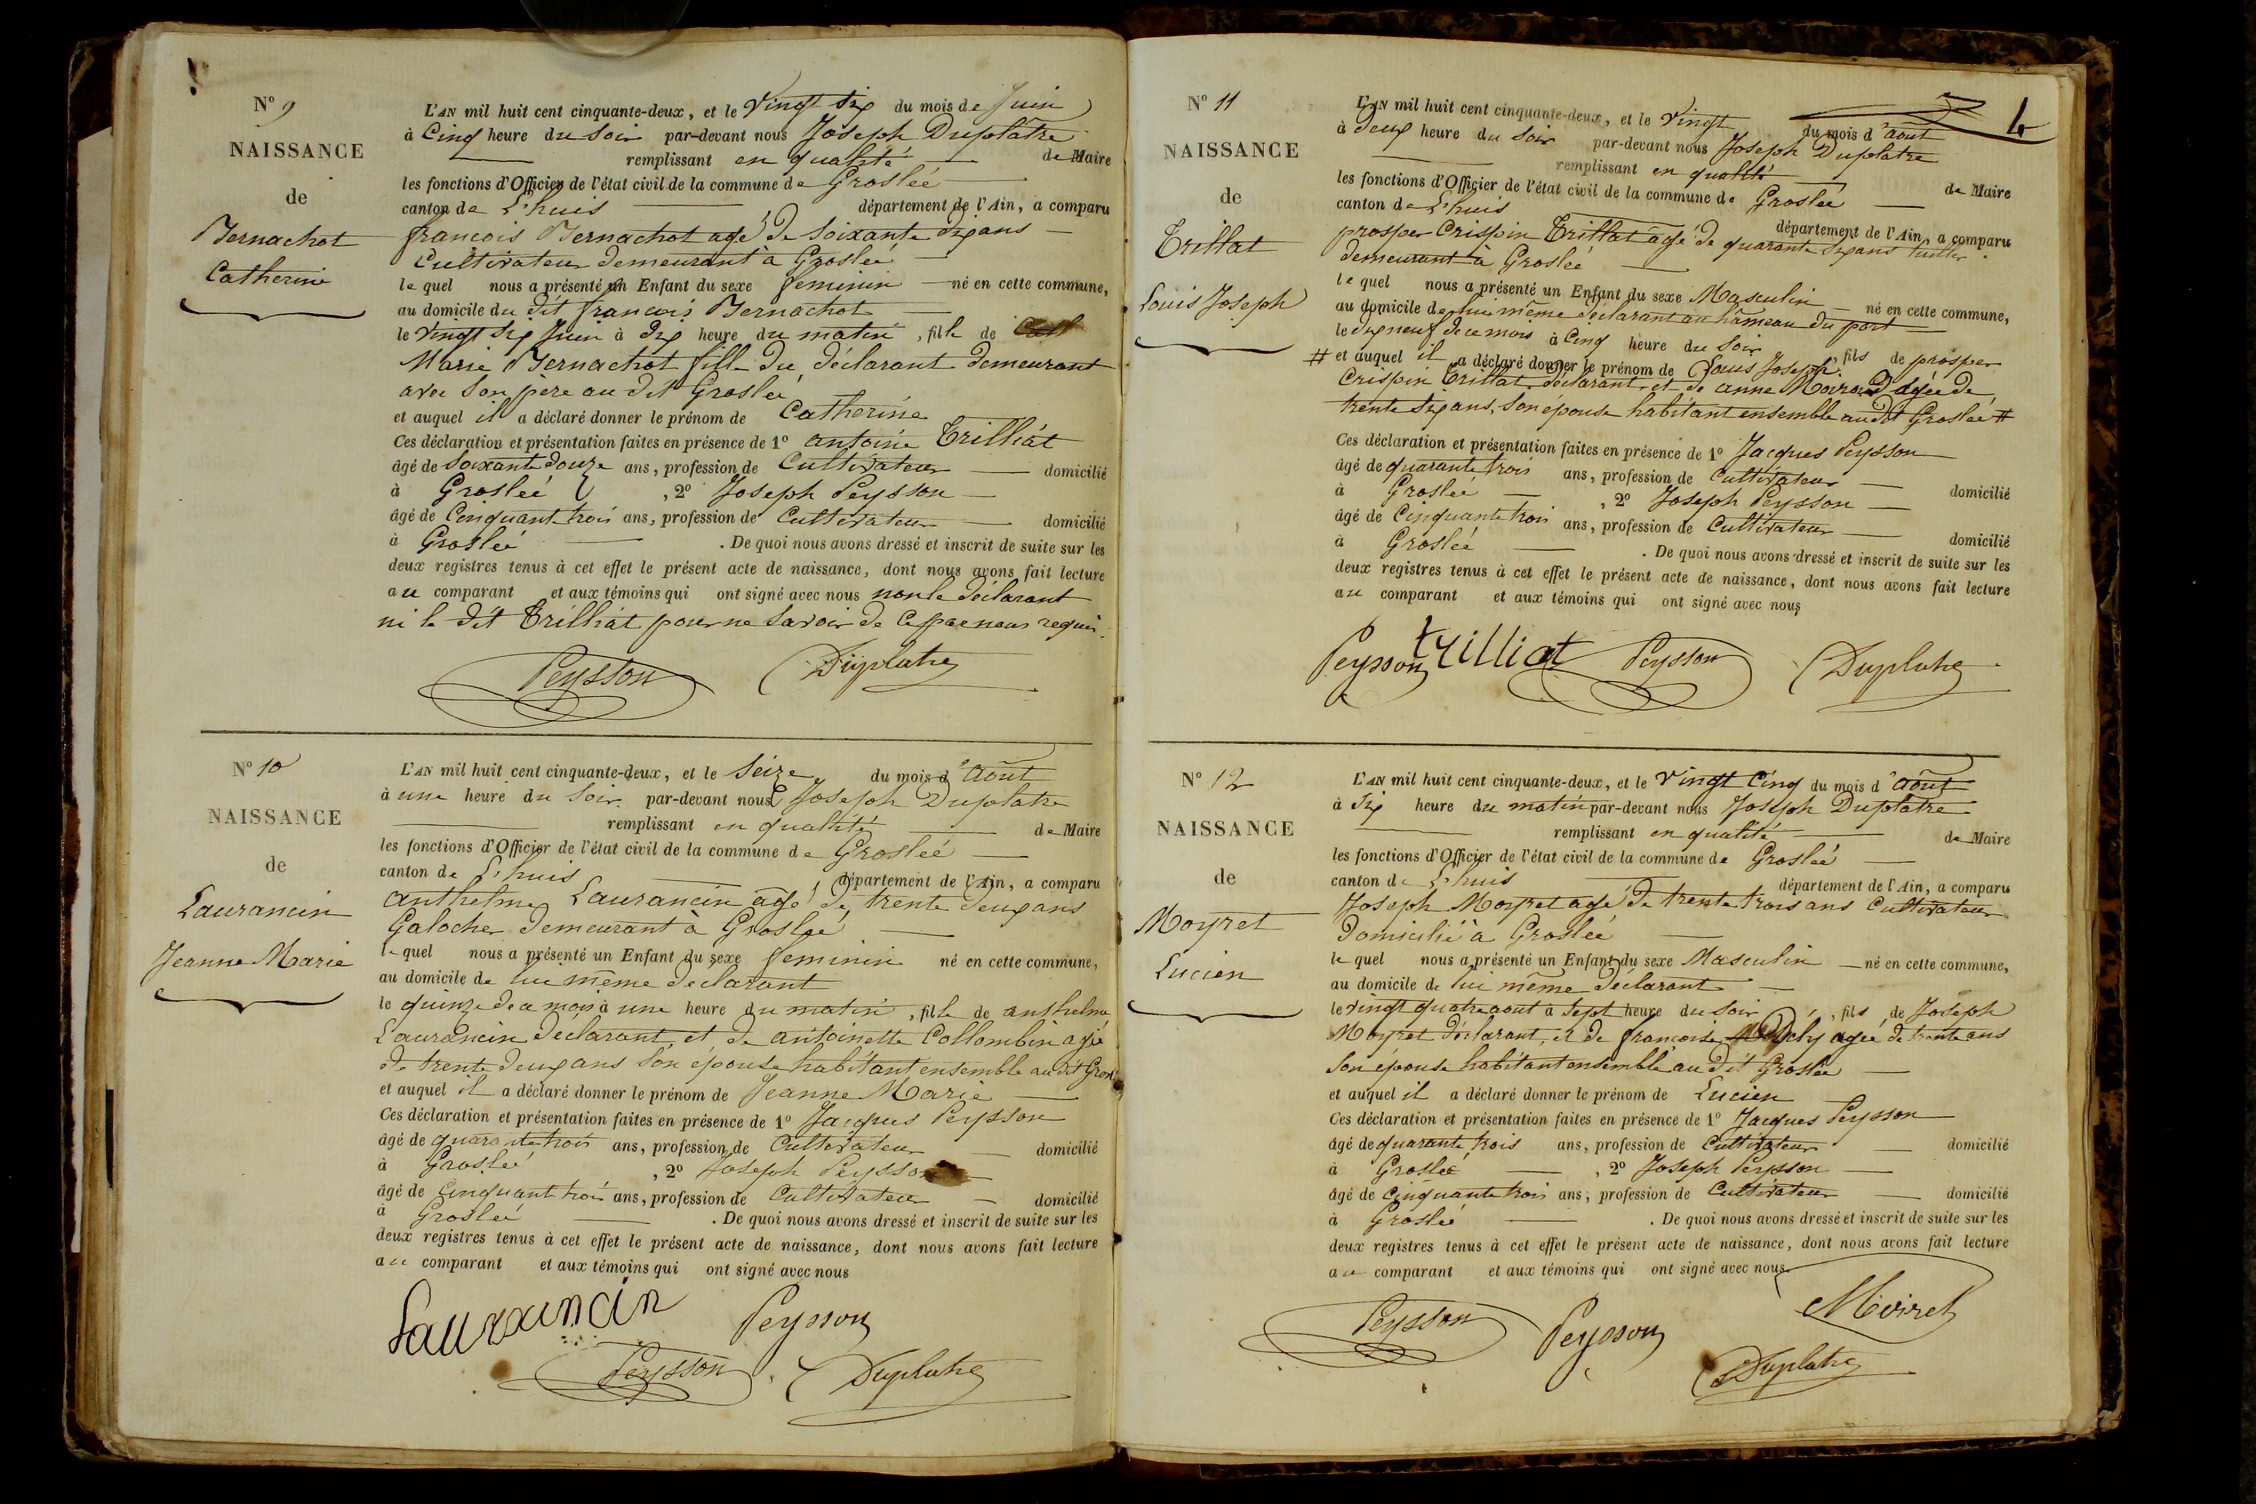 N° 9
NAISSANCE
de
Bernachot
Catherine
L'AN mil huit cent cinquante-deux, et le Vingt six du mois de Juin
à Cinq heure du Soir par-devant nous Joseph Duplâtre
remplissant en qualité de Maire
les fonctions d'Officier de l'état civil de la commune de Groslée
canton de L'huis département de l'Ain, a comparu
françois Bernachot agé de Soixante dix ans
Cultivateur demeurant à Groslée
le quel nous a présenté un Enfant du sexe feminin né en cette commune,
au domicile du dit françois Bernachot
le vingt six Juin à dix heure du matin, fille de
Marie Bernachot fille du déclarant demeurant
avec Son père au dit Groslée
et auquel il a déclaré donner le prénom de Catherine
Ces déclaration et présentation faites en présence de 1° antoine Trilliat
âgé de Soixante douze ans, profession de Cultivateur domicilié
à Groslée, 2° Joseph Peysson
âgé de Cinquant trois ans, profession de Cultivateur domicilié
à Groslée. De quoi nous avons dressé et inscrit de suite sur les
deux registres tenus à cet effet le présent acte de naissance, dont nous avons fait lecture
au comparant et aux témoins qui ont signé avec nous non le déclarant
ni le dit Trilliat pour ne Savoir de Ce par nous requis.
Peysson Duplatre
N° 10
NAISSANCE
de
Laurancin
Jeanne Marie
L'AN mil huit cent cinquante-deux, et le Seize du mois d'août
à une heure du Soir par-devant nous Joseph Duplatre
remplissant en qualité de Maire
les fonctions d'Officier de l'état civil de la commune de Groslée
canton de L'huis département de l'Ain, a comparu
anthelme Laurancin agé de trente deux ans
Galocher demeurant à Groslée
le quel nous a présenté un Enfant du sexe feminin né en cette commune,
au domicile de lui même declarant
le quinze de ce mois à une heure du matin, fille de anthelme
Laurancin déclarant, et de antoinette Collombin agé
de trente deux ans Son épouse habitant ensemble audit
et auquel il a déclaré donner le prénom de Jeanne Marie
Ces déclaration et présentation faites en présence de 1° Jacques Peysson
âgé de quarante trois ans, profession de Cultivateur domicilié
à Groslée, 2° Joseph Peysson
âgé de Cinquant trois ans, profession de Cultivateur domicilié
à Groslée. De quoi nous avons dressé et inscrit de suite sur les
deux registres tenus à cet effet le présent acte de naissance, dont nous avons fait lecture
au comparant et aux témoins qui ont signé avec nous
Laurancin Peysson
Peysson Duplatre
4
N° 11
NAISSANCE
de
Trillat
Louis Joseph
L'AN mil huit cent cinquante-deux, et le Vingt du mois d'août
à deux heure du Soir par-devant nous Joseph Duplatre
remplissant en qualité de Maire
les fonctions d'Officier de l'état civil de la commune de Groslée
canton de L'huis département de l'Ain, a comparu
prosper Crispin Trillat agé de quarante six ans tuiller
demeurant à Groslée
le quel nous a présenté un Enfant du sexe Masculin né en cette commune,
au domicile de lui même déclarant au hameau du port
le dix neuf de ce mois à Cinq heure du Soir, fils de prosper
# et auquel il a déclaré donner le prénom de Louis Joseph
Crispin Trillat déclarant et de anne Moiroud agée de
trente six ans, Son épouse habitant ensemble audit Groslée #
Ces déclaration et présentation faites en présence de 1° Jacques Peysson
âgé de quarante trois ans, profession de Cultivateur domicilié
à Groslée, 2° Joseph Peysson
âgé de Cinquante trois ans, profession de Cultivateur domicilié
à Groslée. De quoi nous avons dressé et inscrit de suite sur les
deux registres tenus à cet effet le présent acte de naissance, dont nous avons fait lecture
au comparant et aux témoins qui ont signé avec nous
Peysson trilliat Peysson Duplatre
N° 12
NAISSANCE
de
Moyret
Lucien
L'AN mil huit cent cinquante-deux, et le Vingt Cinq du mois d'août
à Six heure du matin par-devant nous Joseph Duplatre
remplissant en qualité de Maire
les fonctions d'Officier de l'état civil de la commune de Groslée
canton de L'huis département de l'Ain, a comparu
Joseph Moyret agé de trente trois ans Cultivateur
Domicilié à Groslée
le quel nous a présenté un Enfant du sexe Masculin né en cette commune,
au domicile de lui même Déclarant
le vingt quatre aout à Sept heure du Soir, fils de Joseph
Moyret déclarant, et de francoise agée de trente ans
Son épouse habitant ensemble au dit Groslée
et auquel il a déclaré donner le prénom de Lucien
Ces déclaration et présentation faites en présence de 1° Jacques Peysson
âgé de quarante trois ans, profession de Cultivateur domicilié
à Groslée, 2° Joseph Peysson
âgé de Cinquante trois ans, profession de Cultivateur domicilié
à Groslée. De quoi nous avons dressé et inscrit de suite sur les
deux registres tenus à cet effet le présent acte de naissance, dont nous avons fait lecture
au comparant et aux témoins qui ont signé avec nous
Peysson Peysson Moiret
Duplatre